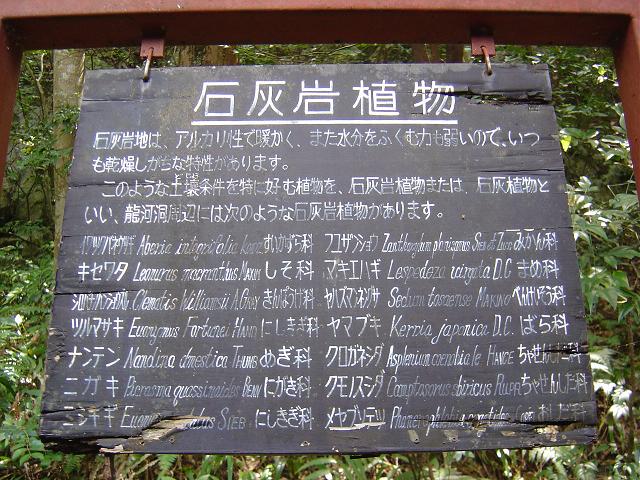 石灰岩植物
石灰岩地は、アルカリ性で暖かく、また水分をふくむ力も弱いので、いつ
も乾燥しがちな特性があります。
このような土壌条件を特に好む植物を、石灰岩植物または、石灰植物と
いい、龍河洞周辺には次のような石灰岩植物があります。
Abelia integrifolia Koidz すいかずら科 フユザンショウ Zanthoxylum Sieb et Zucc みかん科
キセワタ Leonurus macrantius Maxim しそ科 マキエハギ Lespedeza virgata D.C まめ科
Clematis williamsii A.Gray きんぽうげ科 Sedum tosaense Makino べんけいそう科
ツルマサキ Euonymus Fortunei Hand にしきぎ科 ヤマブキ Kerria japonica D.C. ばら科
ナンテン Nandina dmestica Thunb めぎ科 クロガネシダ Asplenium coenobiale Hance ちゃせんしだ科
ニガキ Picrasma quassinoides Benn にがき科 クモノスシダ Camptosorus sibiricus Rupr ちゃせんしだ科
ニシキギ Sieb にしきぎ科 メヤブソテツ おしだ科